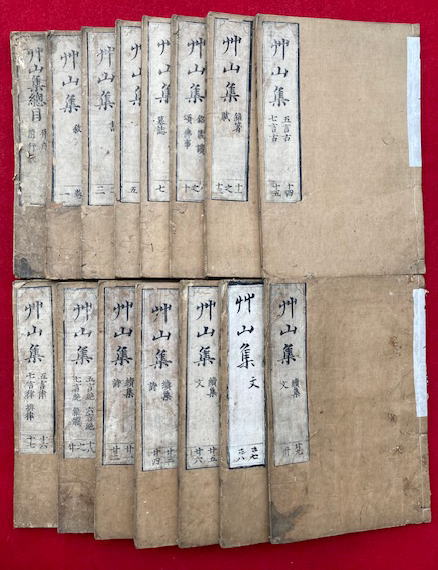 艸山集總目
艸山集
敘
一
艸山集
書
二
艸山集
五
艸山集
墓誌
七
艸山集
銘
頌佛事
之十
艸山集
雜著
賦
十一
之十三
艸山集
五言古
七言古
十四
十五
艸山集
五言律
七言律排律
十六
十七
艸山集
五言絶六言絶
七言絶
十八
之廿
艸山集
續集
詩
廿一
廿二
艸山集
續集
詩
廿三
廿四
艸山集
續集
文
廿五
廿六
艸山集
文
艸山集
續集
文
廿九
卅